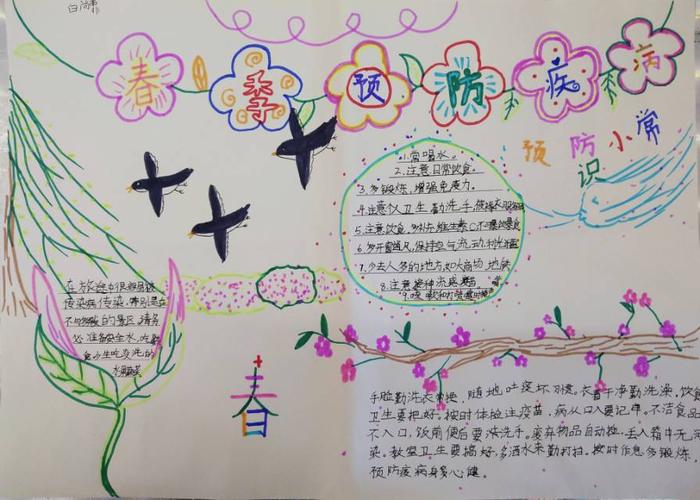 春季预防疾病
预防小常识
1.常喝水。
2.注意日常饮食。
3.多锻炼,增强免疫力。
4.注意仪卫生,勤洗手,
5.注意饮食,多补充维生素C,不
6.多开窗通风,保持空气流动,
7.少去人多的地方,如大商场、地铁
8.注意接种流感疫苗
9.咳嗽和打喷嚏时
在旅途中很容易被
传染病传染,特别是在
的景区,请务
必准备安全水,
春
手脸勤洗衣常换,随地吐痰坏习惯。衣着干净勤洗澡,饮食
卫生要把好。按时体检注疫苗,病从口入要记牢。不洁食品
不入口,饭前便后要洗手。废弃物品自动捡,丢入箱中无污
染。教室卫生要搞好,多洒水来勤打扫。按时作息多锻炼,
预防疫病身心健。